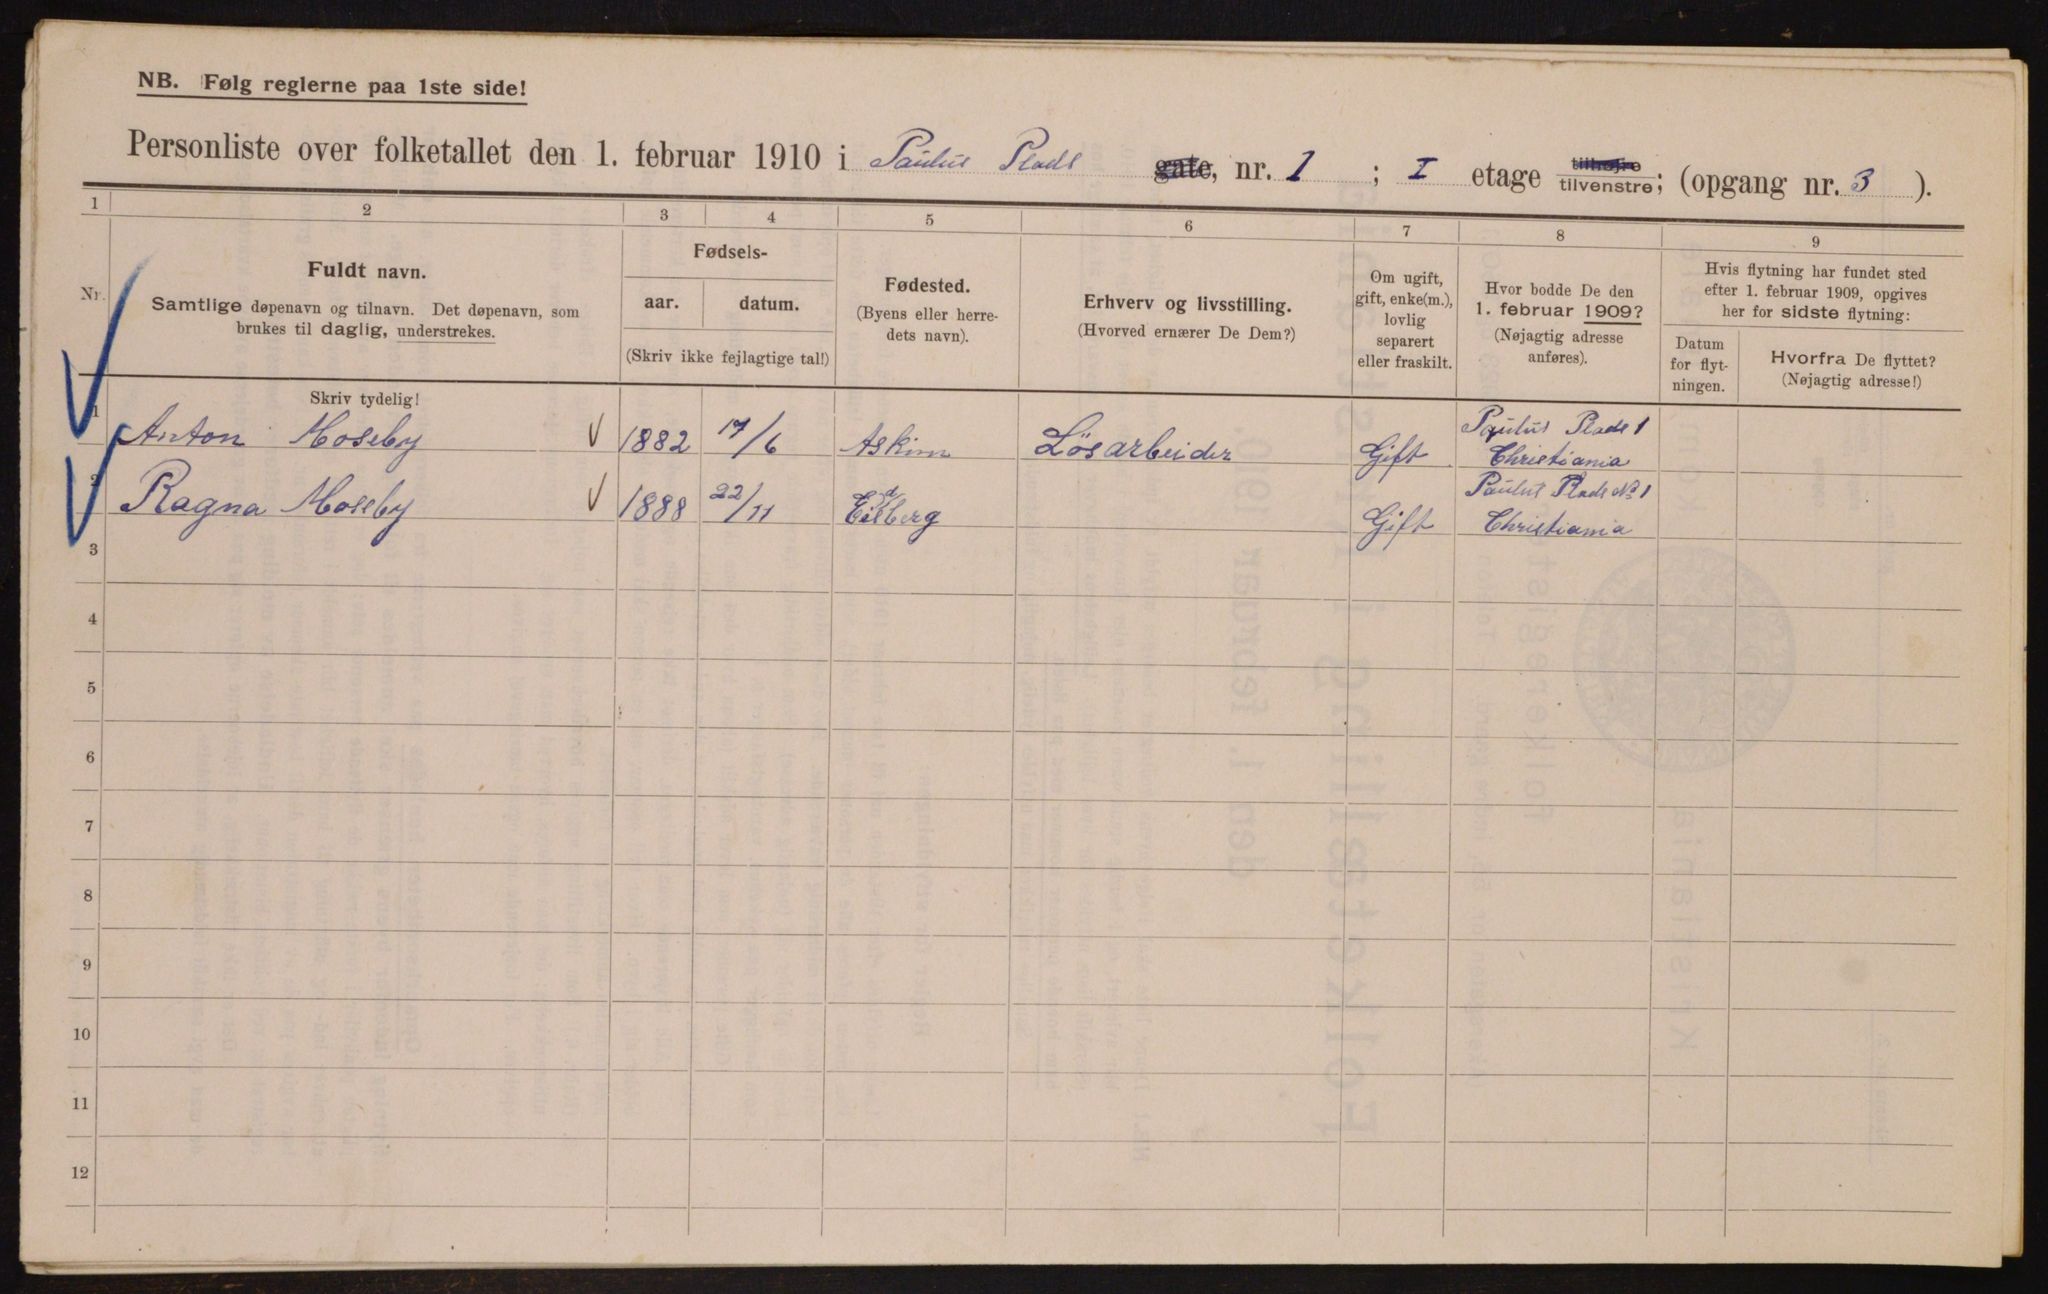 NB. Følg reglerne paa 1ste side!
Personliste over folketallet den 1. februar 1910 i Paulus Plads gate, nr. 1 ; I etage tilhøjre tilvenstre; (opgang nr. 3 ).
1 2 3 4 5 6 7 8 9
Nr.
Fuldt navn.
Samtlige døpenavn og tilnavn. Det døpenavn, som
brukes til daglig, understrekes.
Skriv tydelig!
Fødsels-
aar. datum.
(Skriv ikke fejlagtige tal!)
Fødested.
(Byens eller herre-
dets navn).
Erhverv og livsstilling.
(Hvorved ernærer De Dem?)
Om ugift,
gift, enke(m.),
lovlig
separert
eller fraskilt.
Hvor bodde De den
1. februar 1909?
(Nøjagtig adresse
anføres).
Hvis flytning har fundet sted
efter 1. februar 1909, opgives
her for sidste flytning:
Datum
for flyt-
ningen.
Hvorfra De flyttet?
(Nøjagtig adresse!)
1 Anton Moseby 1882 17/6 Askim Lösarbeider Gift Paulus Plads 1
Christiania
2 Ragna Moseby 1888 22/11 Eidsberg Gift Paulus Plads No 1
Christiania
3
4
5
6
7
8
9
10
11
12